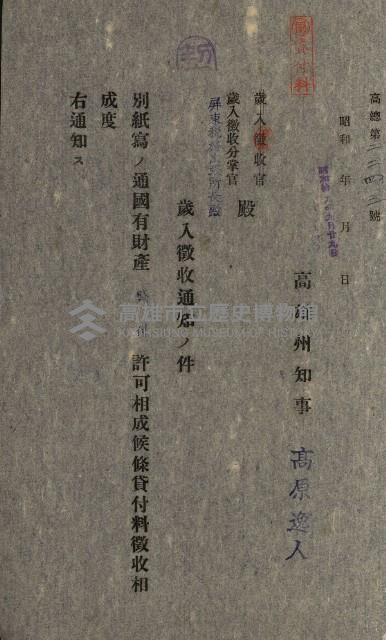 高總第二二四二號
昭和 年 月 日
貸付料
高雄州知事 高原逸人
歲入徵收官
歲入徵收分掌官 殿
歲入徵收通知ノ件
別紙寫ノ通國有財產 許可相成候條貸付料徵收相
成度
右通知ス
高雄市立歷史博物館
KAOHSIUNG MUSEUM OF HISTORY